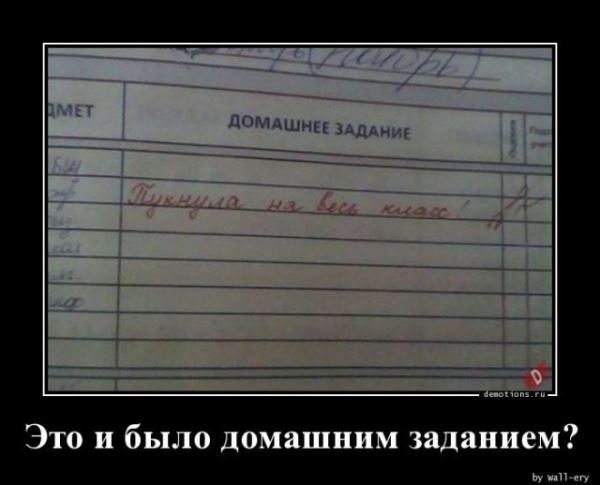 (Ноябрь)
ДМЕТ
ДОМАШНЕЕ ЗАДАНИЕ
Оценка
Пукнула на весь класс!
demotions.ru
Это и было домашним заданием?
by wall-ery